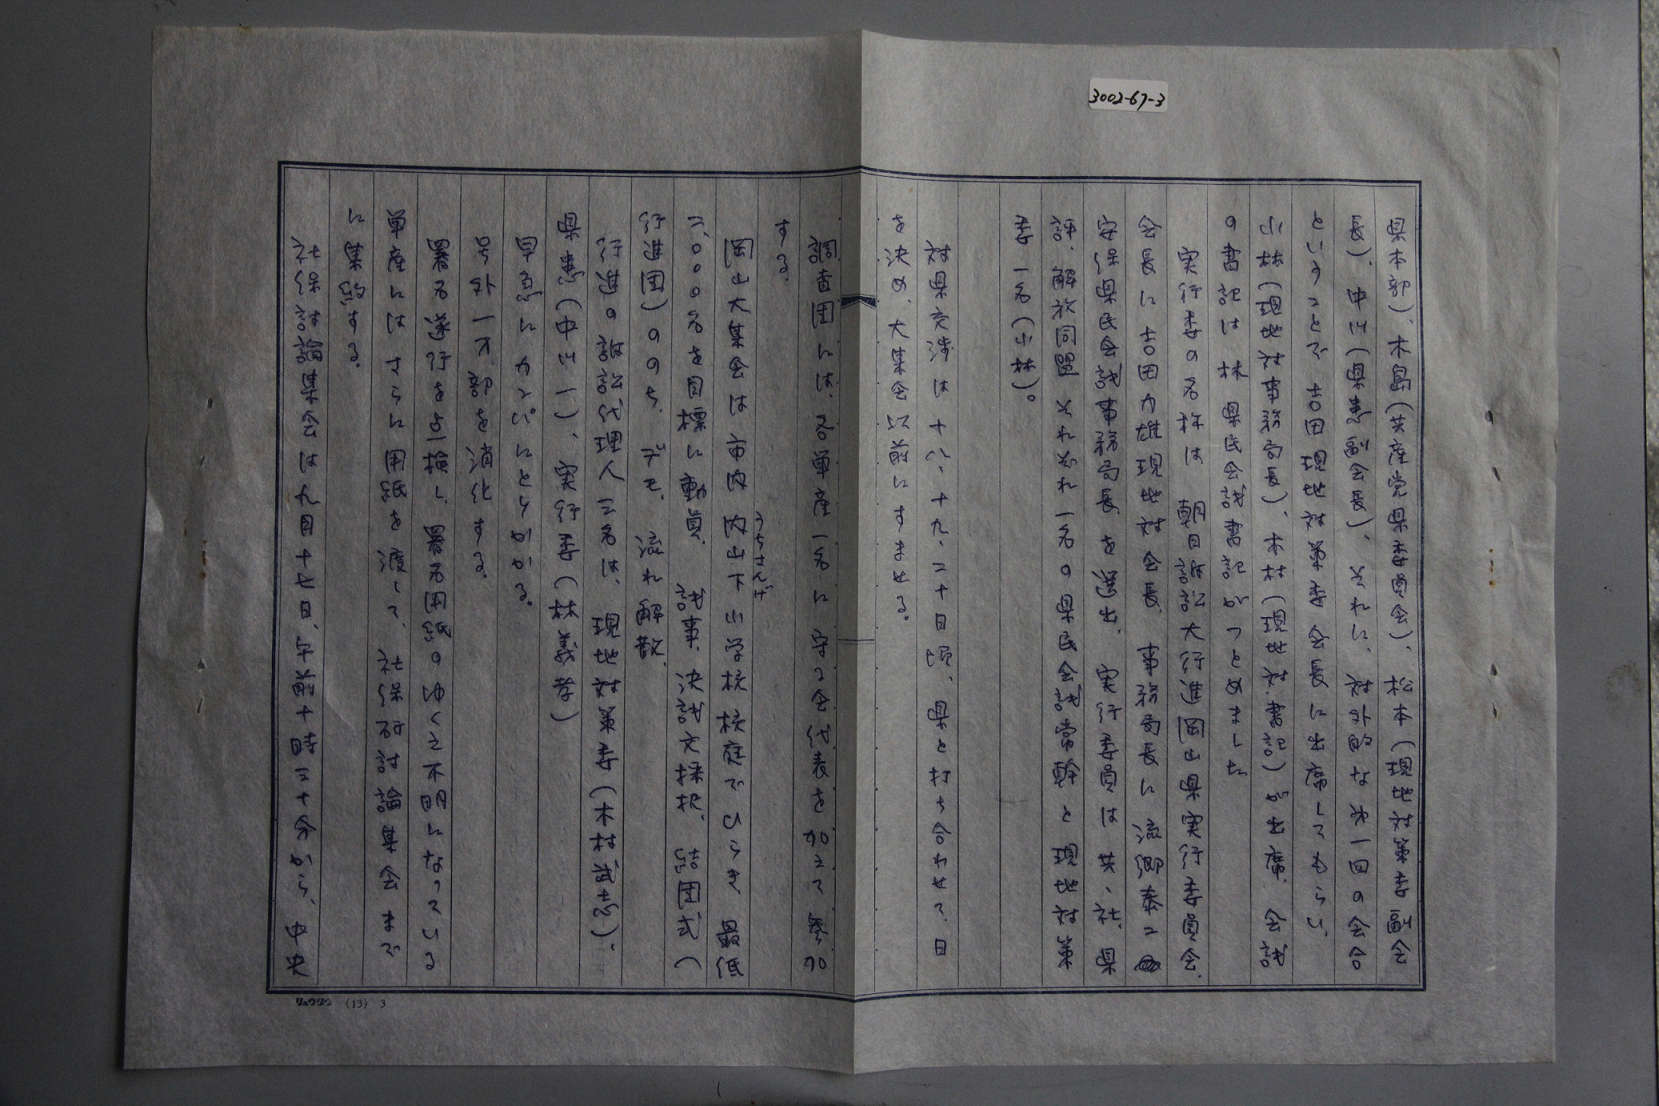 3002-67-3
県本部)、木島(共産党県委員会)、松本(現地対策委副会
長)、中川(県患副会長)、それに、対外的な第一回の会合
ということで吉田現地対策委会長に出席してもらい、
小林(現地対事務局長)、木村(現地対書記)が出席、会議
の書記は林県民会議書記がつとめました
実行委の名称は朝日訴訟大行進岡山県実行委員会、
会長に吉田力雄現地対会長、事務局長に流郷泰二
安保県民会議事務局長を選出、実行委員は共、社、県
評、解放同盟それぞれ一名の県民会議常幹と現地対策
委一名(小林)。
対県交渉は十八、十九、二十日頃、県と打ち合わせて、日
を決め、大集会以前にすませる。
調査団には、各単産一名に守る会代表を加えて参加
する。
岡山大集会は市内内山下小学校校庭でひらき、最低
うちさんげ
二、〇〇〇名を目標に動員、議事、決議文採択、結団式(
行進団)ののち、デモ、流れ解散、
行進の訴訟代理人三名は、現地対策委(木村武志)、
県患(中川一)、実行委(林義孝)
早急にカンパにとりかかる。
号外一万部を消化する。
署名遂行を点検し、署名用紙のゆくえ不明になっている
単産にはさらに用紙を渡して、社保討論集会まで
に集約する。
社保討論集会は九月十七日、午前十時三十分から、中央
リュウジン (13) 3